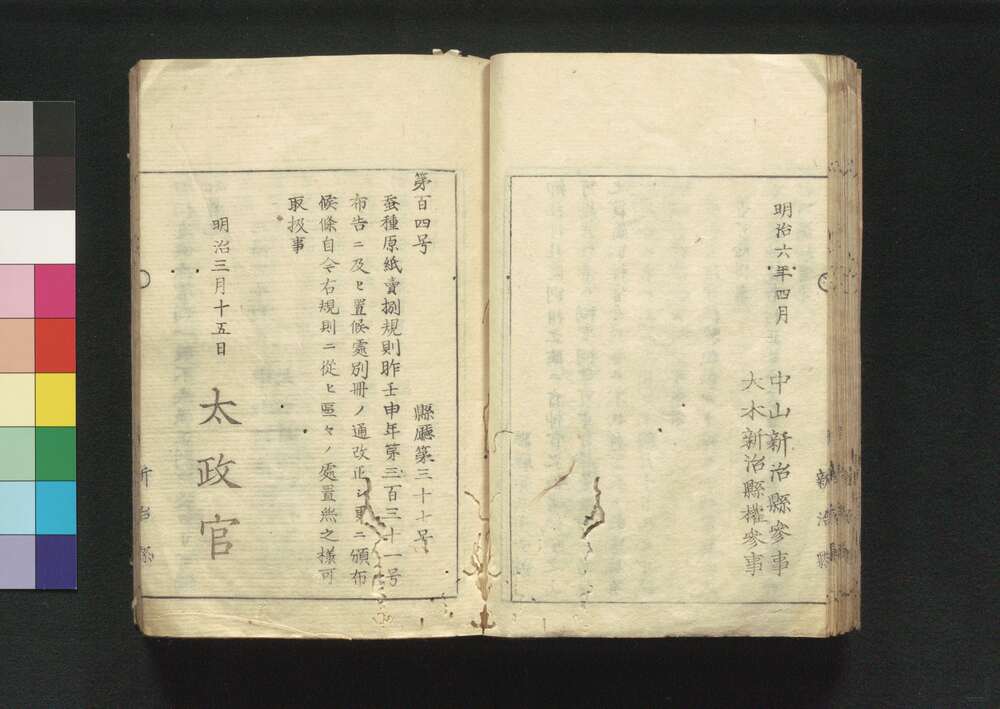 明治六年四月
中山新治縣參事
大木新治縣權參事
新治縣
第百四号
縣廳第三十七号
蚕種原紙賣捌規則昨壬申年第三百三十一号
布告ニ及ヒ置候處別冊ノ通改正シ更ニ頒布
候條自今右規則ニ從ヒ區々ノ處置無之樣可
取扱事
明治三月十五日
太政官
新治縣